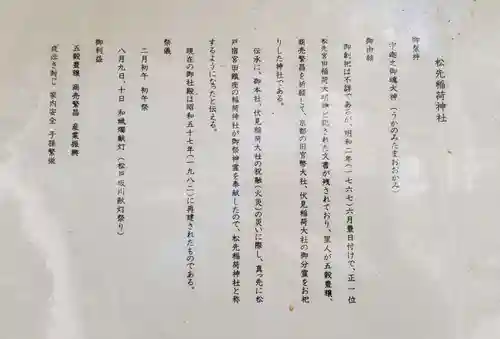 松先稲荷神社
御祭神
宇迦之御魂大神（うかのみたまおおかみ）
御由緒
御創祀は不詳であるが、明和二年（一七六七）六月曼日付けで、正一位
松先宮田稲荷大明神と記された文書が残されており、里人が五穀豊穣、
商売繁昌を祈願して、京都の旧官幣大社、伏見稲荷大社の御分霊をお祀
りした神社である。
伝承に、御本社・伏見稲荷大社の祝融（火災）の災いに際し、真っ先に松
戸宿宮田鎮座の稲荷神社が御祭神霊を奉献したので、松先稲荷神社と称
するようになったと伝える。
現在の御社殿は昭和五十七年（一九八二）に再建されたものである。
祭儀
二月初午　初午祭
八月九日、十日　和蝋燭献灯（松戸坂川献灯祭り）
御利益
五穀豊穣　商売繁昌　産業振興
夜泣き封じ　家内安全　子孫繁栄